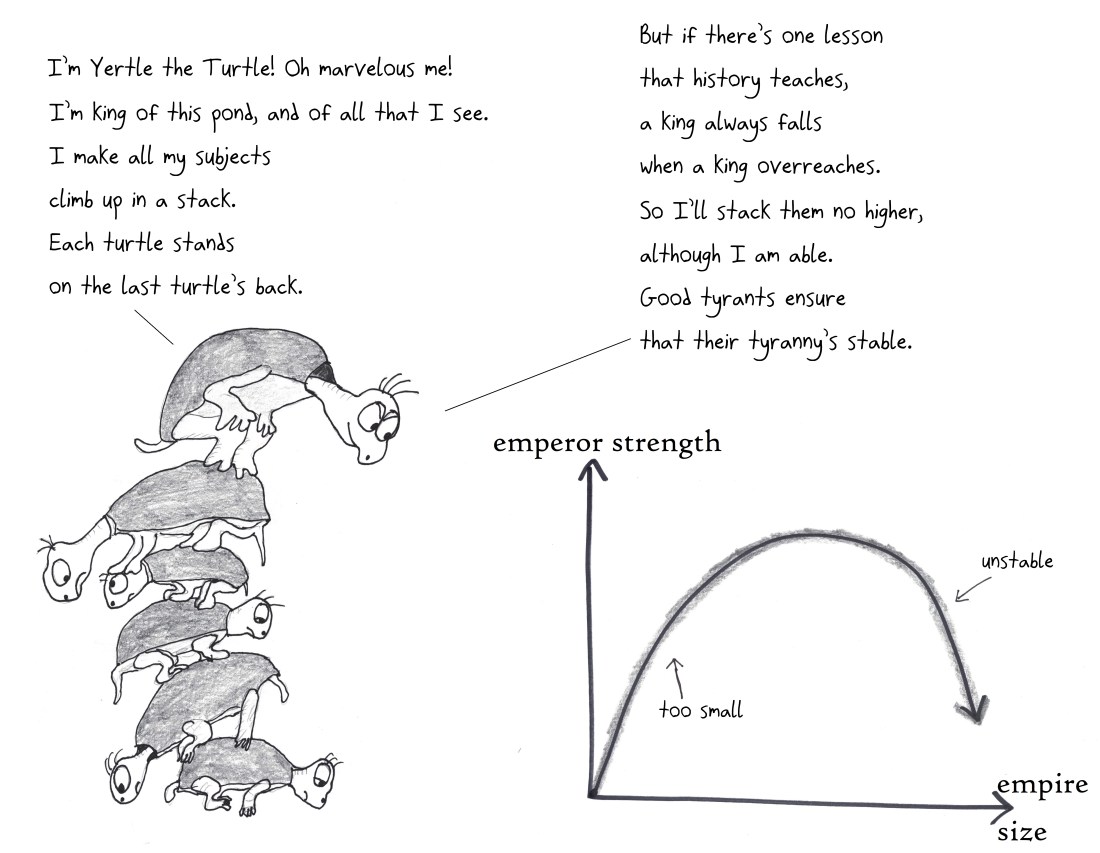 I'm Yertle the Turtle! Oh marvelous me!
I'm king of this pond, and of all that I see.
I make all my subjects
climb up in a stack.
Each turtle stands
on the last turtle's back.
But if there's one lesson
that history teaches,
a king always falls
when a king overreaches.
So I'll stack them no higher,
although I am able.
Good tyrants ensure
that their tyranny's stable.
emperor strength
unstable
too small
empire
size